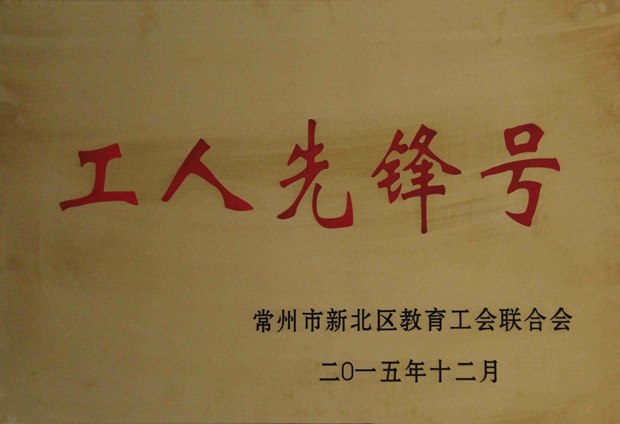 工人先锋号
常州市新北区教育工会联合会
二0一五年十二月